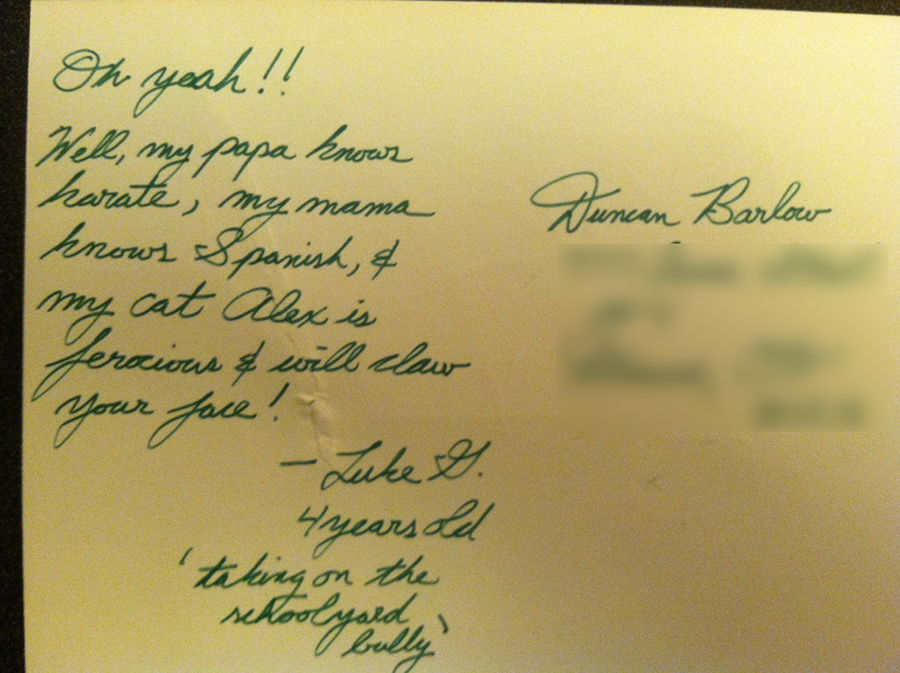 Oh yeah!!
Well, my papa knows
karate, my mama
knows Spanish, &
my cat Alex is
ferocious & will claw
your face!
— Luke G.
4 years old
'taking on the
schoolyard
bully'
Duncan Barlow